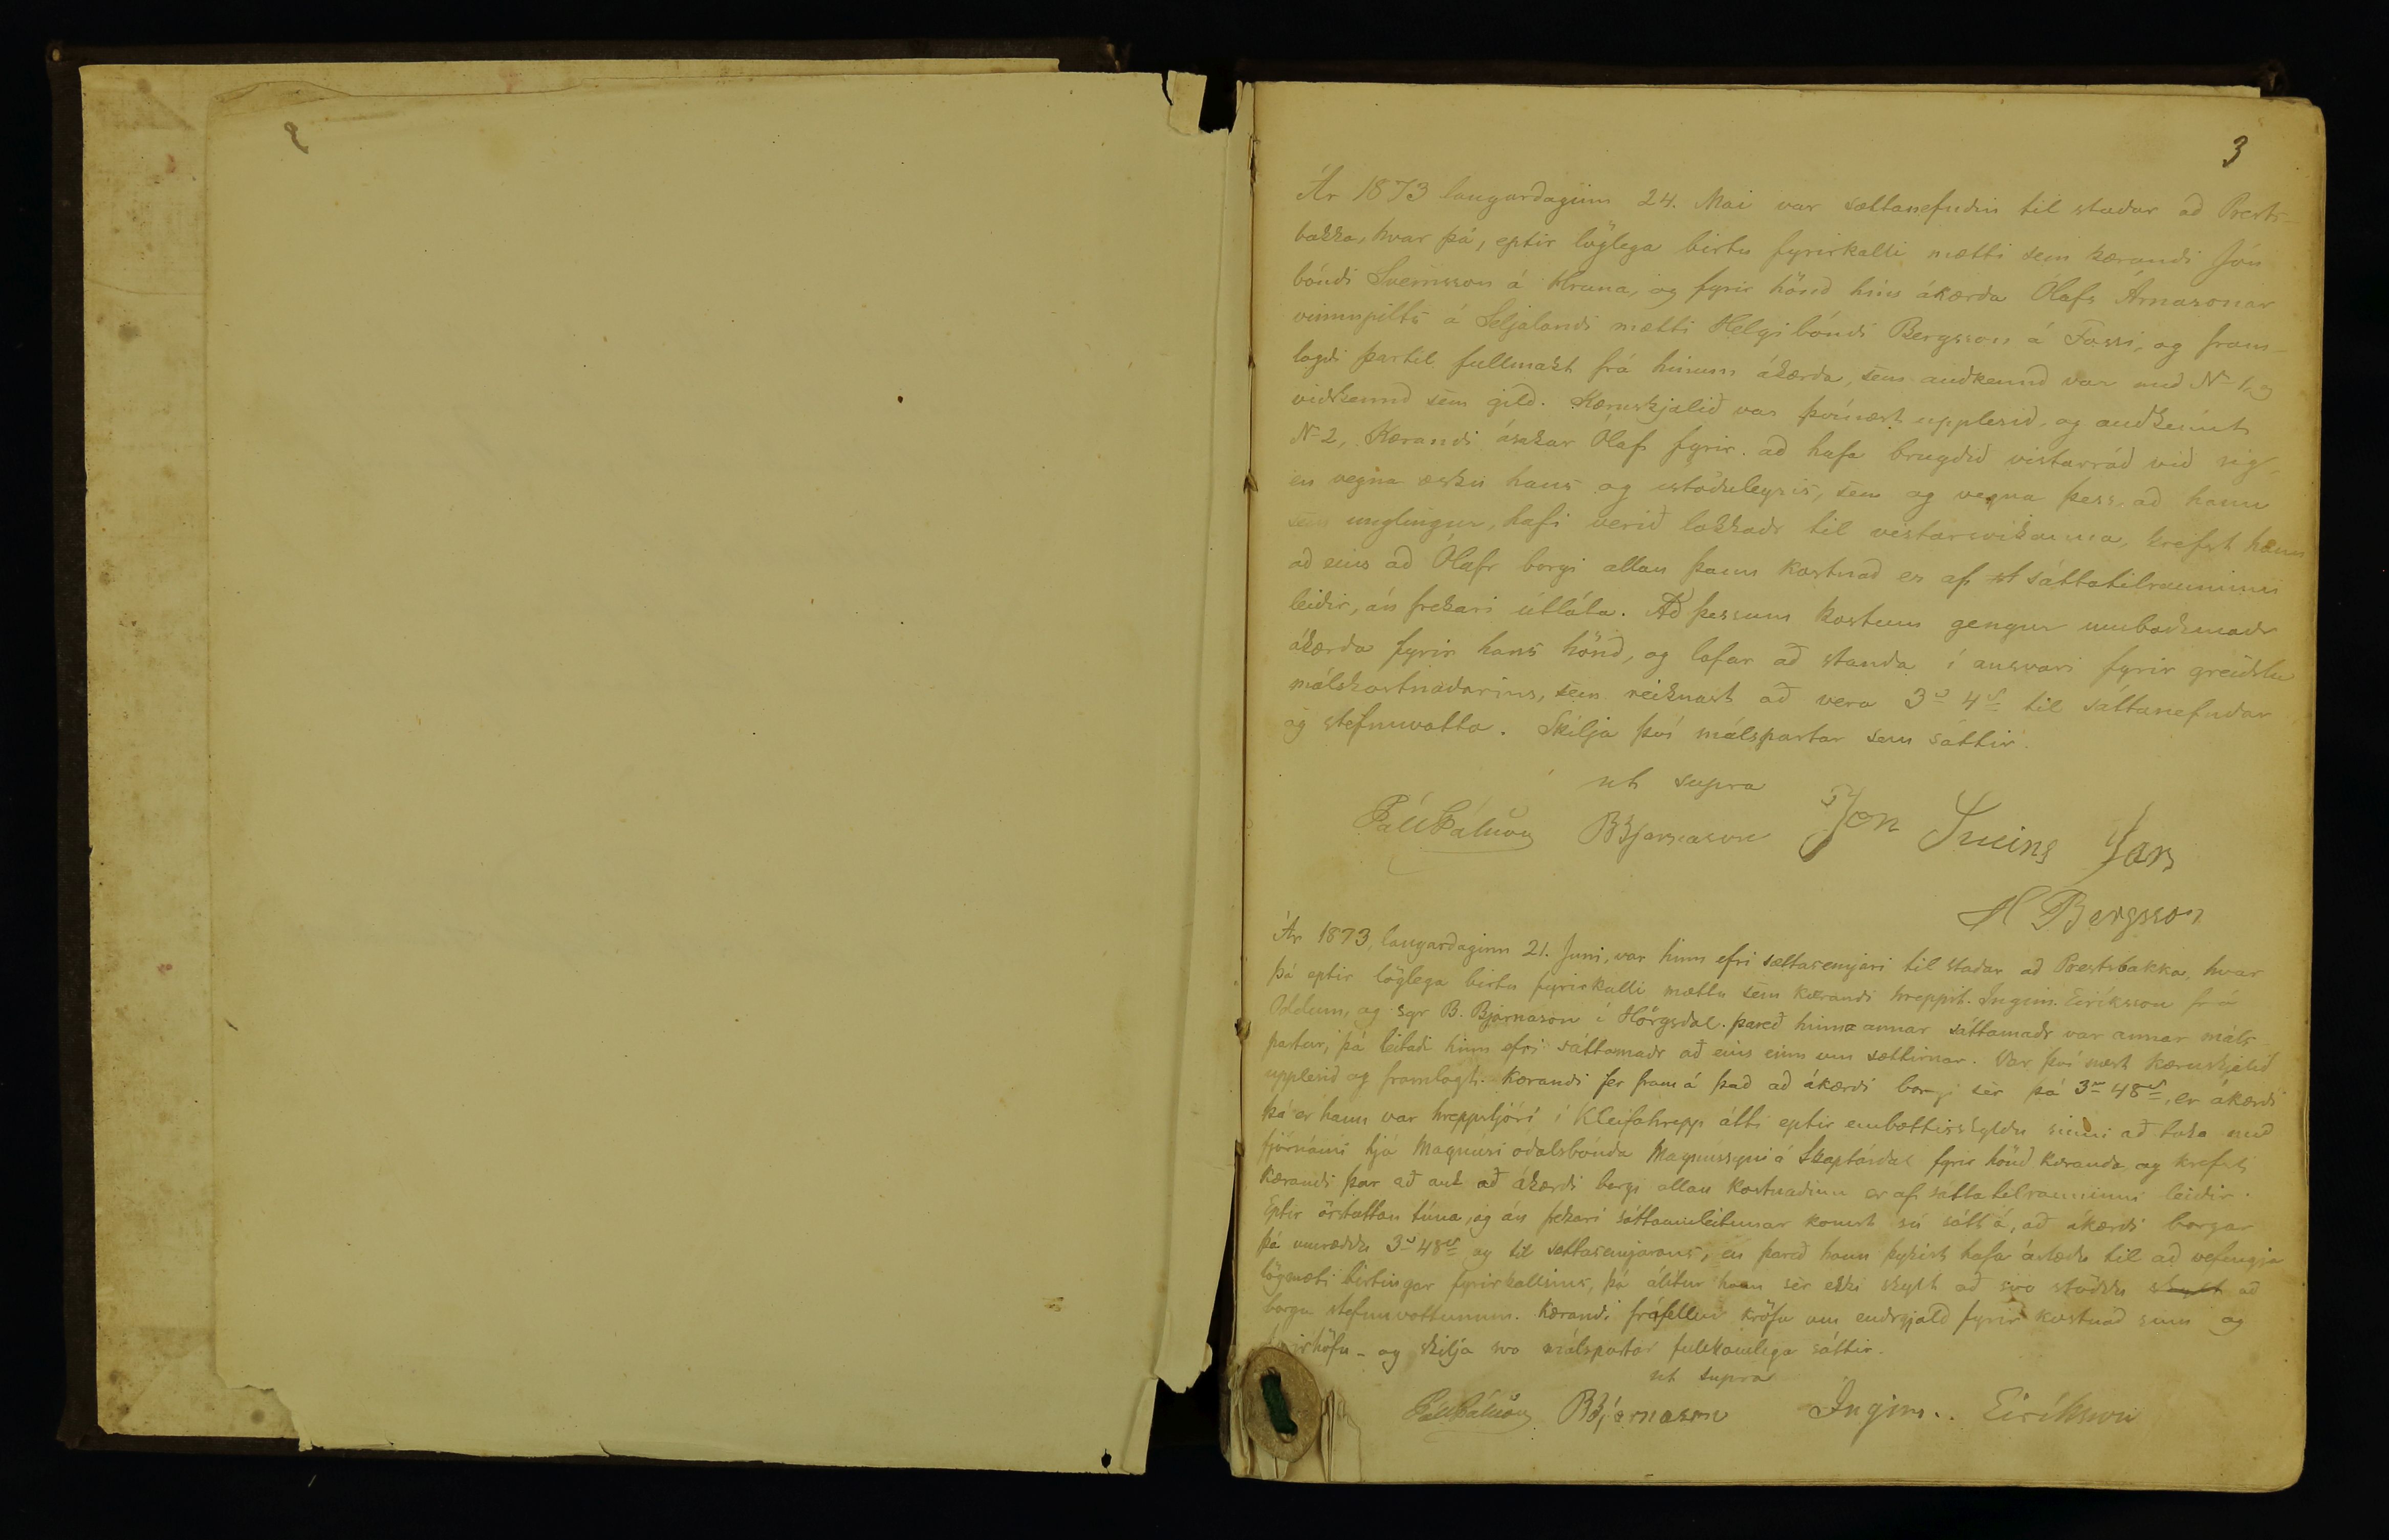 2
3
Ár 1873 laugardaginn 24. Mai var sættanefndin til staðar að Prests-
bakka, hvar þá, eptir löglega birtu fyrirkalli mætti sem kærandi Jón
bóndi Sveinsson á Hruna, og fyrir hönd hins ákærða Ólafs Árnasonar
vinnupilts á Seljalandi mætti Helgi bóndi Bergsson á Fossi, og fram-
lagði þartil fullmakt frá hinum ákærða, sem auðkennd var með No 1, og
viðkennd sem gild. Kæruskjalið var þvínærst upplesið, og auðkennt
No 2, Kærandi ásakar Ólaf fyrir að hafa brugðið vistarráð við sig,
en vegna æsku hans og istöðuleysis, sem og vegna þess, að hann
sem unglingur, hafi verið lokkaðr til vistarsvikanna, krefst hann
að eins að Ólafr borgi allan þann kostnað er af sáttatilrauninni
leiðir, án frekari útláta. Að þessum kostum gengur umboðsmaðr
ákærða fyrir hans hönd, og lofar að standa í ansvari fyrir greiðslu
málskostnaðarins, sem reiknast að vera 3 4 til sáttanefndar
og stefnuvotta. Skilja því málspartar sem sáttir.
ut supra
Páll Pálsson BBjarnason Jón Sveins son
H Bergsson
Ár 1873, laugardaginn 21. Juni, var hinn efri sættasemjari til staðar að Prestsbakka, hvar
þá eptir löglega birtu fyrirkalli mættu sem kærandi hreppst. Ingim. Eiríksson frá
Oddum, og sgr B. Bjarnason í Hörgsdal. þareð hinn annar sáttamaðr var annar máls-
partur, þá leitaði hinn efri sáttamaðr að eins einn um sættirnar. Var því næst kæruskjalið
upplesið og framlagt. Kærandi fer fram á það að ákærði borgi sèr þá 3 48, er ákærði
þá er hann var hreppstjóri í Kleifahrepp átti eptir embættisskyldu sinni að taka með
fjárnámi hjá Magnúsi óðalsbónda Magnússyni á Skaptárdal fyrir hönd kæranda, og krefst
kærandi þar að auk að ákærði borgi allan kostnaðinn er af sáttatilrauninni leiðir.
Eptir örstuttan tíma, og án frekari sáttaumleitunar komst sú sátt á, að ákærði borgar
þá umræddu 3 48 og til sættasemjarans, en þareð hann þykist hafa ástæðu til að vefengja
lögmæti birtingar fyrirkallsins, þá álítur hann sèr ekki skylt að svo stöddu skylt að
borga stefnuvottunum. Kærandi fráfellur kröfu um endrgjald fyrir kostnað sinn og
fyrirhöfn - og skilja svo málspartar fullkomlega sáttir.
ut supra
Páll Pálsson BBjarnason Ingim. Eiríksson